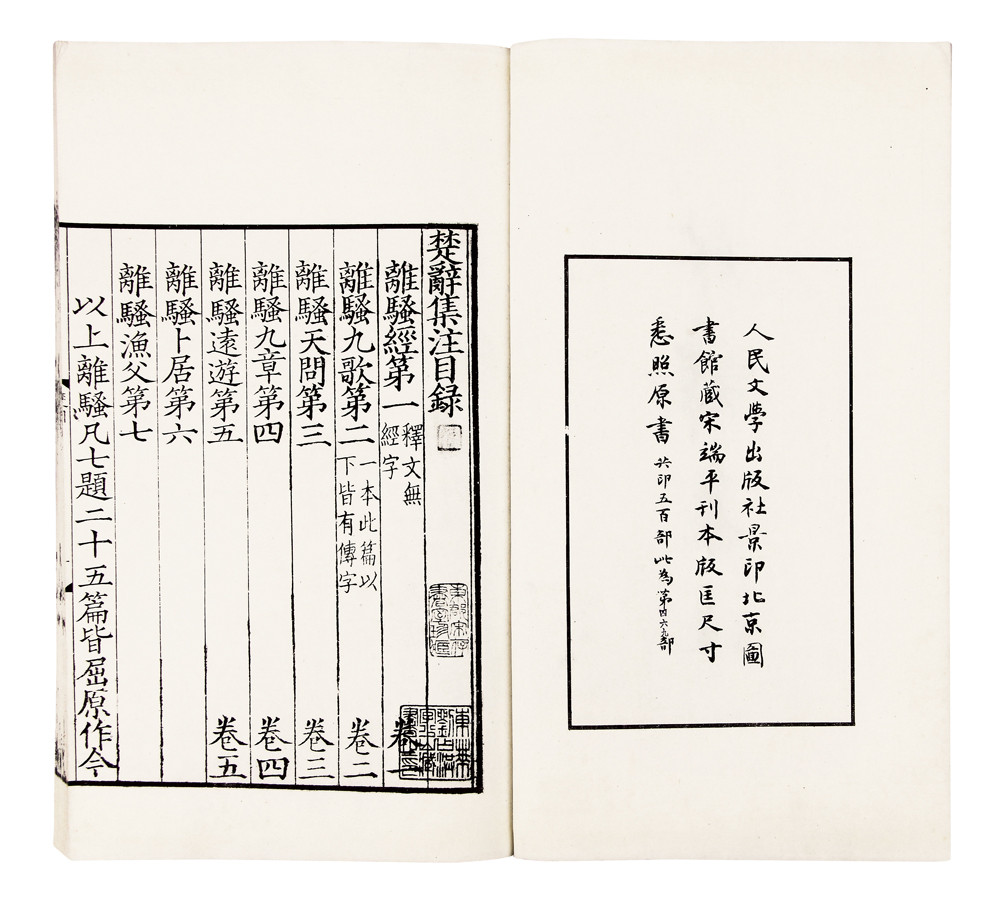 人民文學出版社景印北京圖
書館藏宋端平刊本版匡尺寸
悉照原書 共印五百部此為第四六九部
楚辭集注目錄
東郡宋存書室珍藏
東萊劉占洪字少山藏書之印
離騷經第一 釋文無經字 卷一
離騷九歌第二 一本此篇以下皆有傳字 卷二
離騷天問第三 卷三
離騷九章第四 卷四
離騷遠遊第五 卷五
離騷卜居第六
離騷漁父第七
以上離騷凡七題二十五篇皆屈原作今